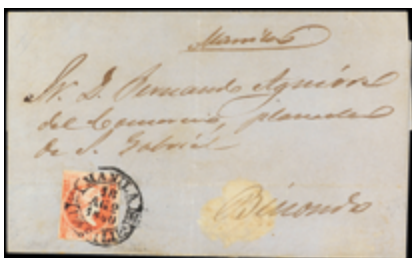 Manila
Sr. D. Fernando Aguirre
del Comercio, plazuela
de S. Gabriel
Binondo
MANILA
18